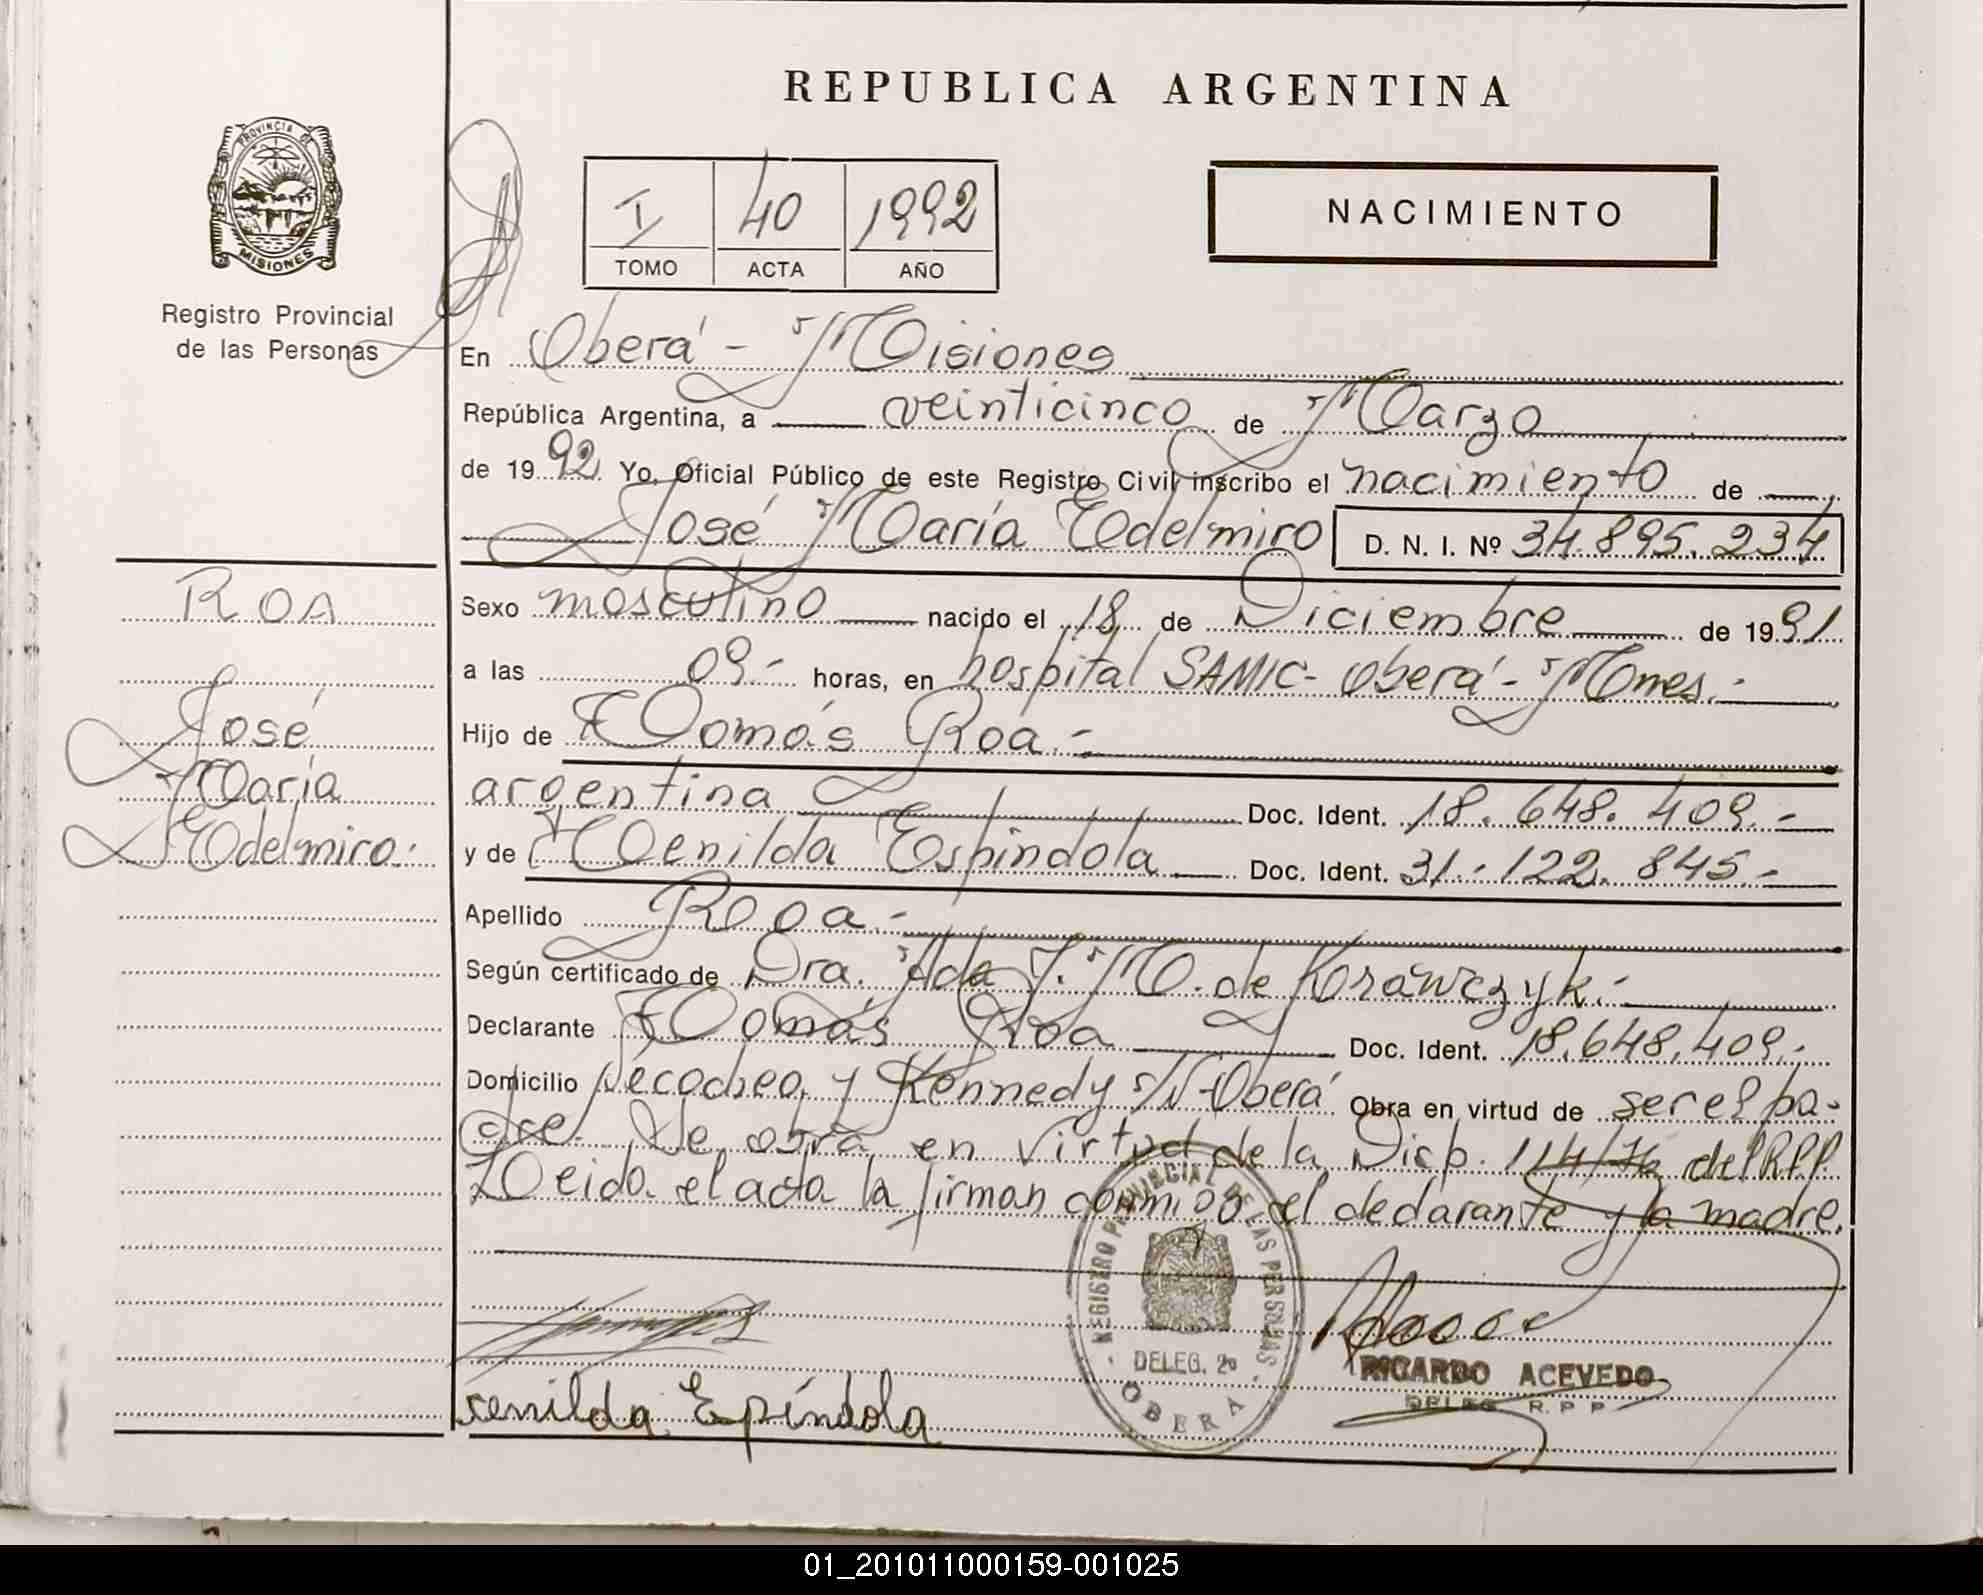 REPUBLICA ARGENTINA
PROVINCIA DE
MISIONES
Registro Provincial
de las Personas
I 40 1992
TOMO ACTA AÑO
NACIMIENTO
En Oberá - Misiones
República Argentina, a veinticinco de Marzo
de 1992 Yo, Oficial Público de este Registro Civil inscribo el nacimiento de
José María Edelmiro D. N. I. Nº 34.895.234
ROA
José
María
Edelmiro.-
Sexo masculino nacido el 18 de Diciembre de 1991
a las 09.- horas, en hospital SAMIC - Oberá - Mnes.-
Hijo de Tomás Roa.-
argentina Doc. Ident. 18.648.409.-
y de Cenilda Espíndola Doc. Ident. 31.122.845.-
Apellido Roa.-
Según certificado de Dra. Ada J. M. de Krawczyk.-
Declarante Tomás Roa Doc. Ident. 18.648.409.-
Domicilio Necochea y Kennedy S/N - Oberá Obra en virtud de ser el pa-
dre. Se obra en virtud de la Disp. 114/76 del R.P.P.
Leida el acta la firman conmigo el declarante y la madre.
REGISTRO PROVINCIAL DE LAS PERSONAS
DELEG. 2º
OBERA
RICARDO ACEVEDO
DELEG R. P. P.
cenilda Epíndola
01_201011000159-001025